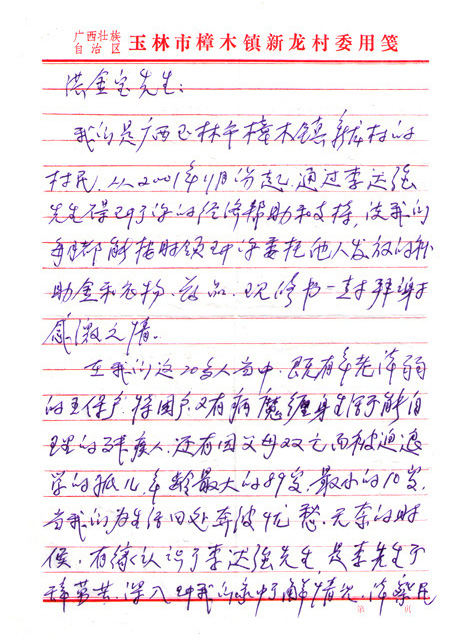 广西壮族
自治区 玉林市樟木镇新龙村委用笺
洪金宝先生:
我们是广西玉林市樟木镇新龙村的
村民,从2001年11月份起,通过李达强
先生得到了您的经济帮助和支持,使我们
每月都能按时领到您委托他人发放的补
助金和衣物、药品。现修书一封拜谢并
感激之情。
在我们这70多人当中,既有年老体弱
的五保户、特困户,又有病魔缠身生活不能自
理的残疾人,还有因父母双亡而被迫退
学的孤儿,年龄最大的89岁,最小的10岁,
当我们为生活四处奔波,忧愁、无奈的时
候,有缘认识了李达强先生,是李先生不
辞劳苦,深入到我们家中了解情况,体察民
第 页